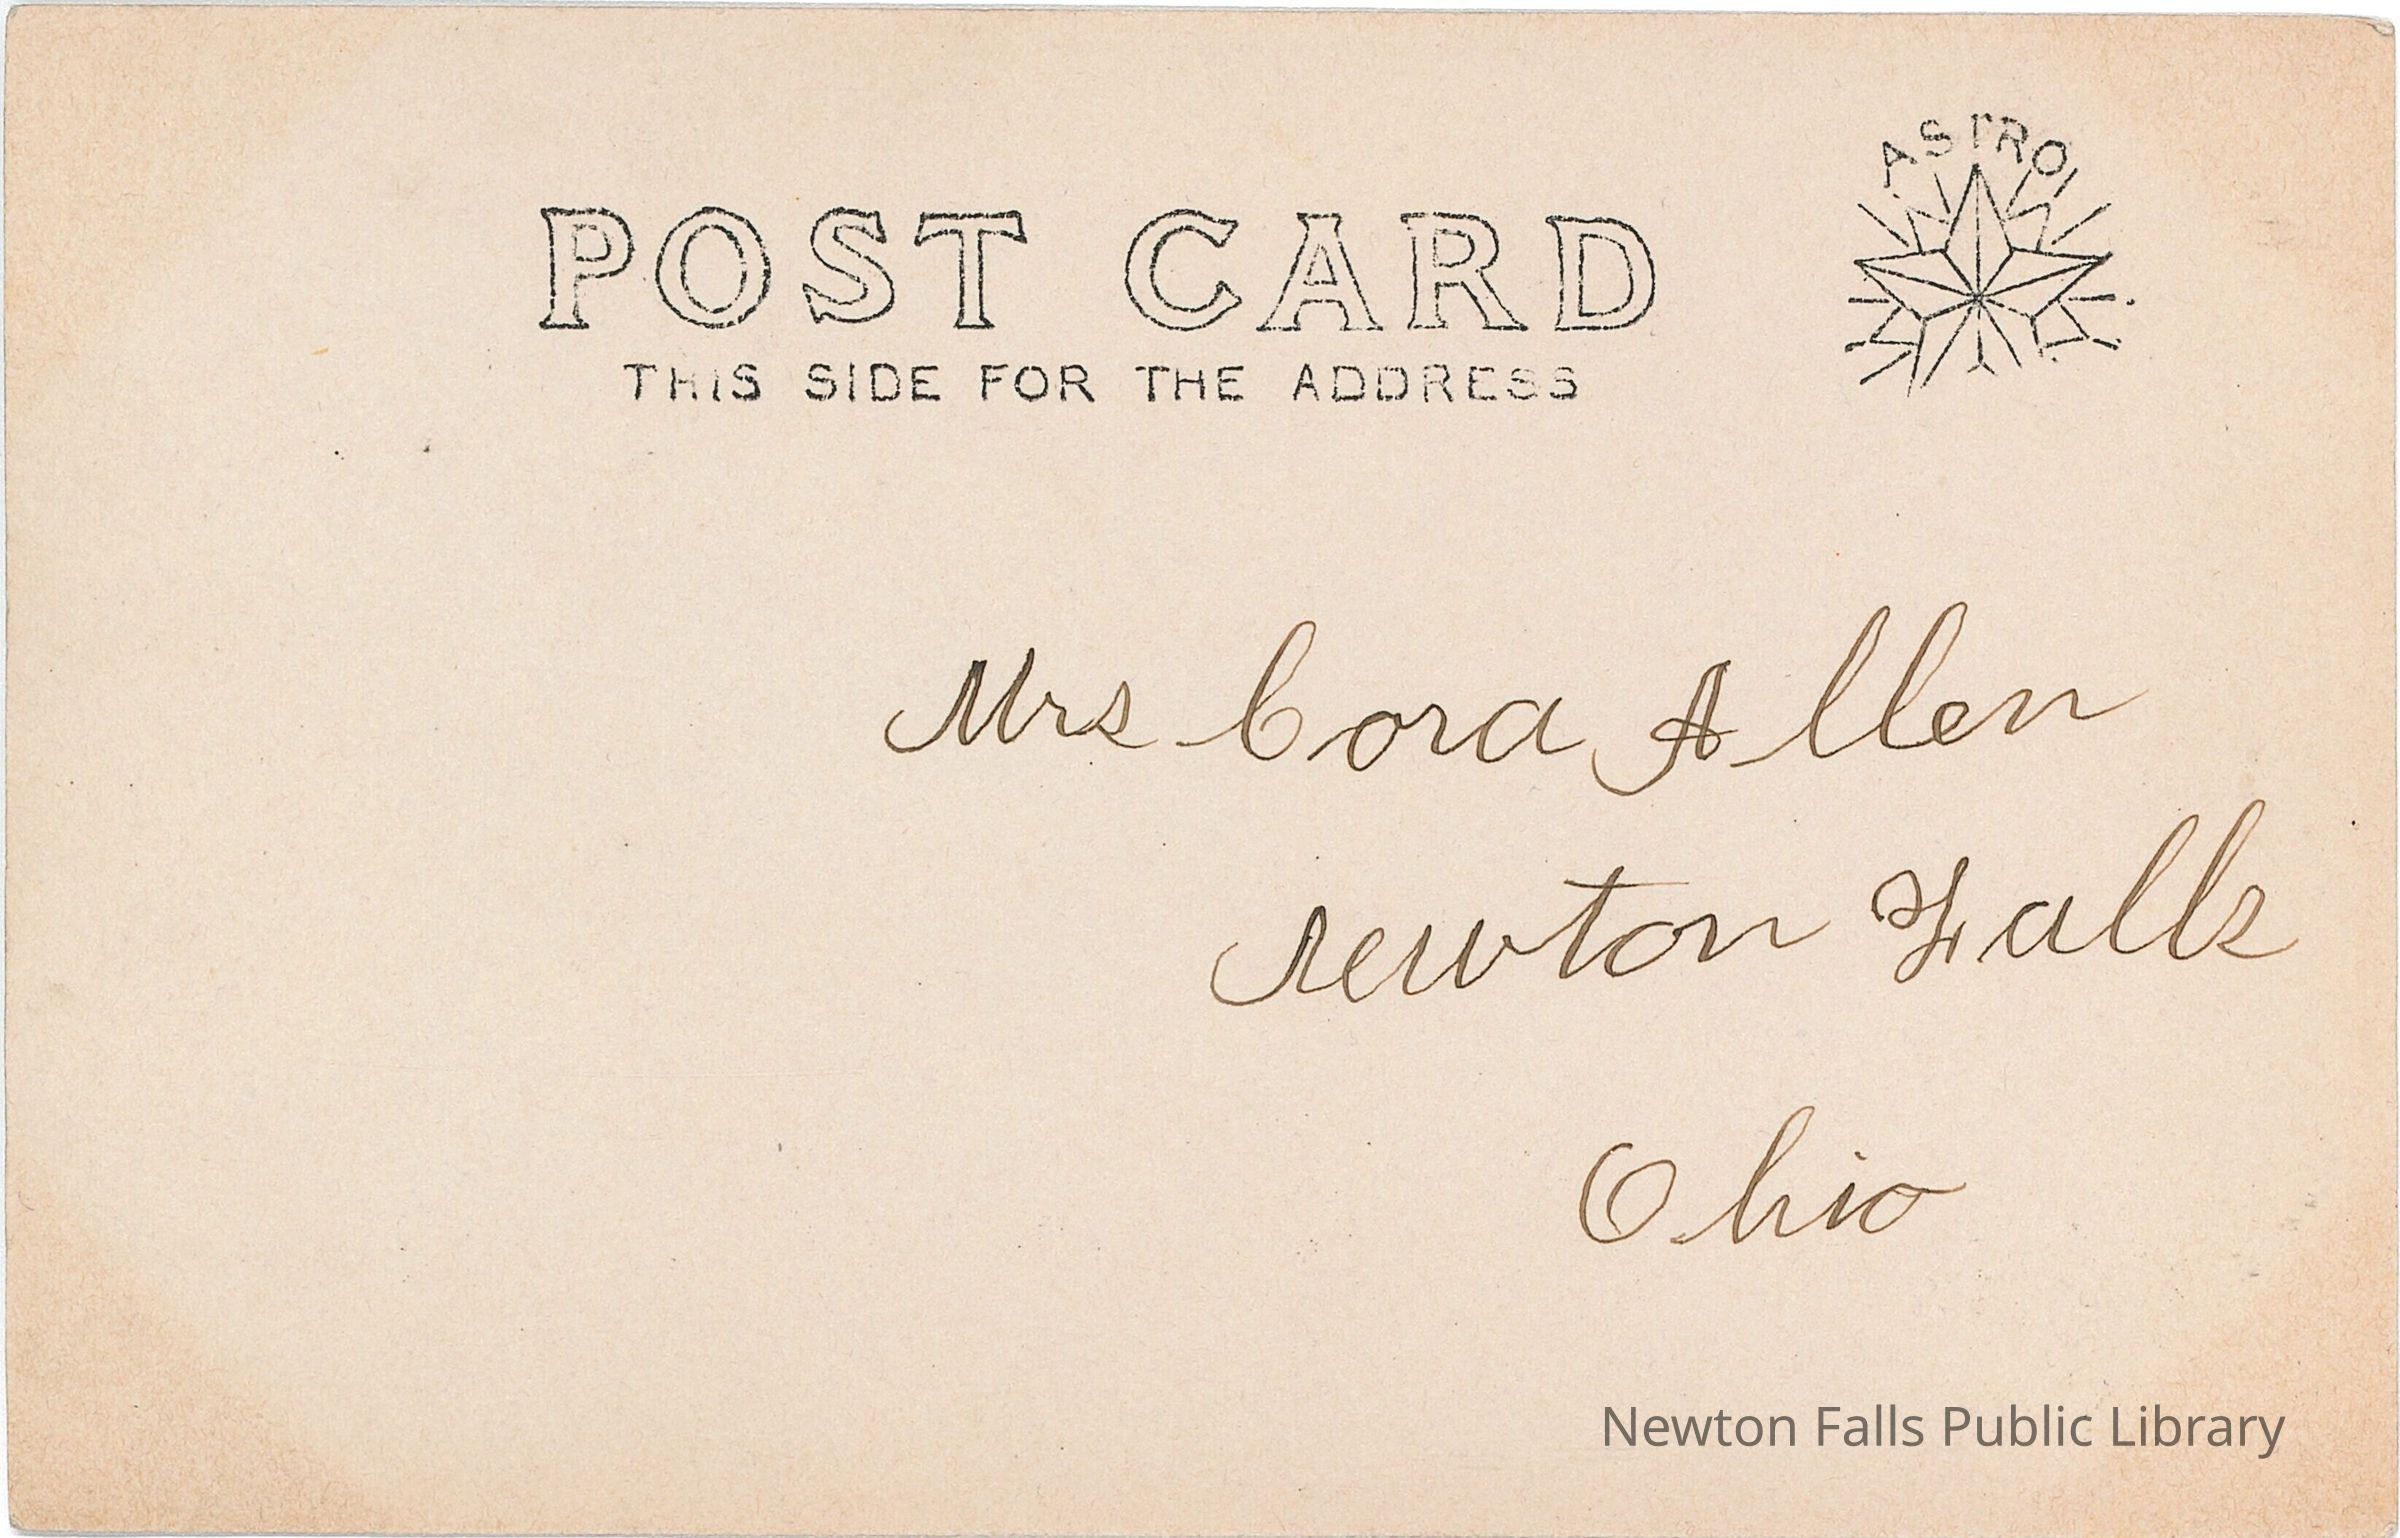 ASTRO
POST CARD
THIS SIDE FOR THE ADDRESS
Mrs Cora Allen
Newton Falls
Ohio
Newton Falls Public Library